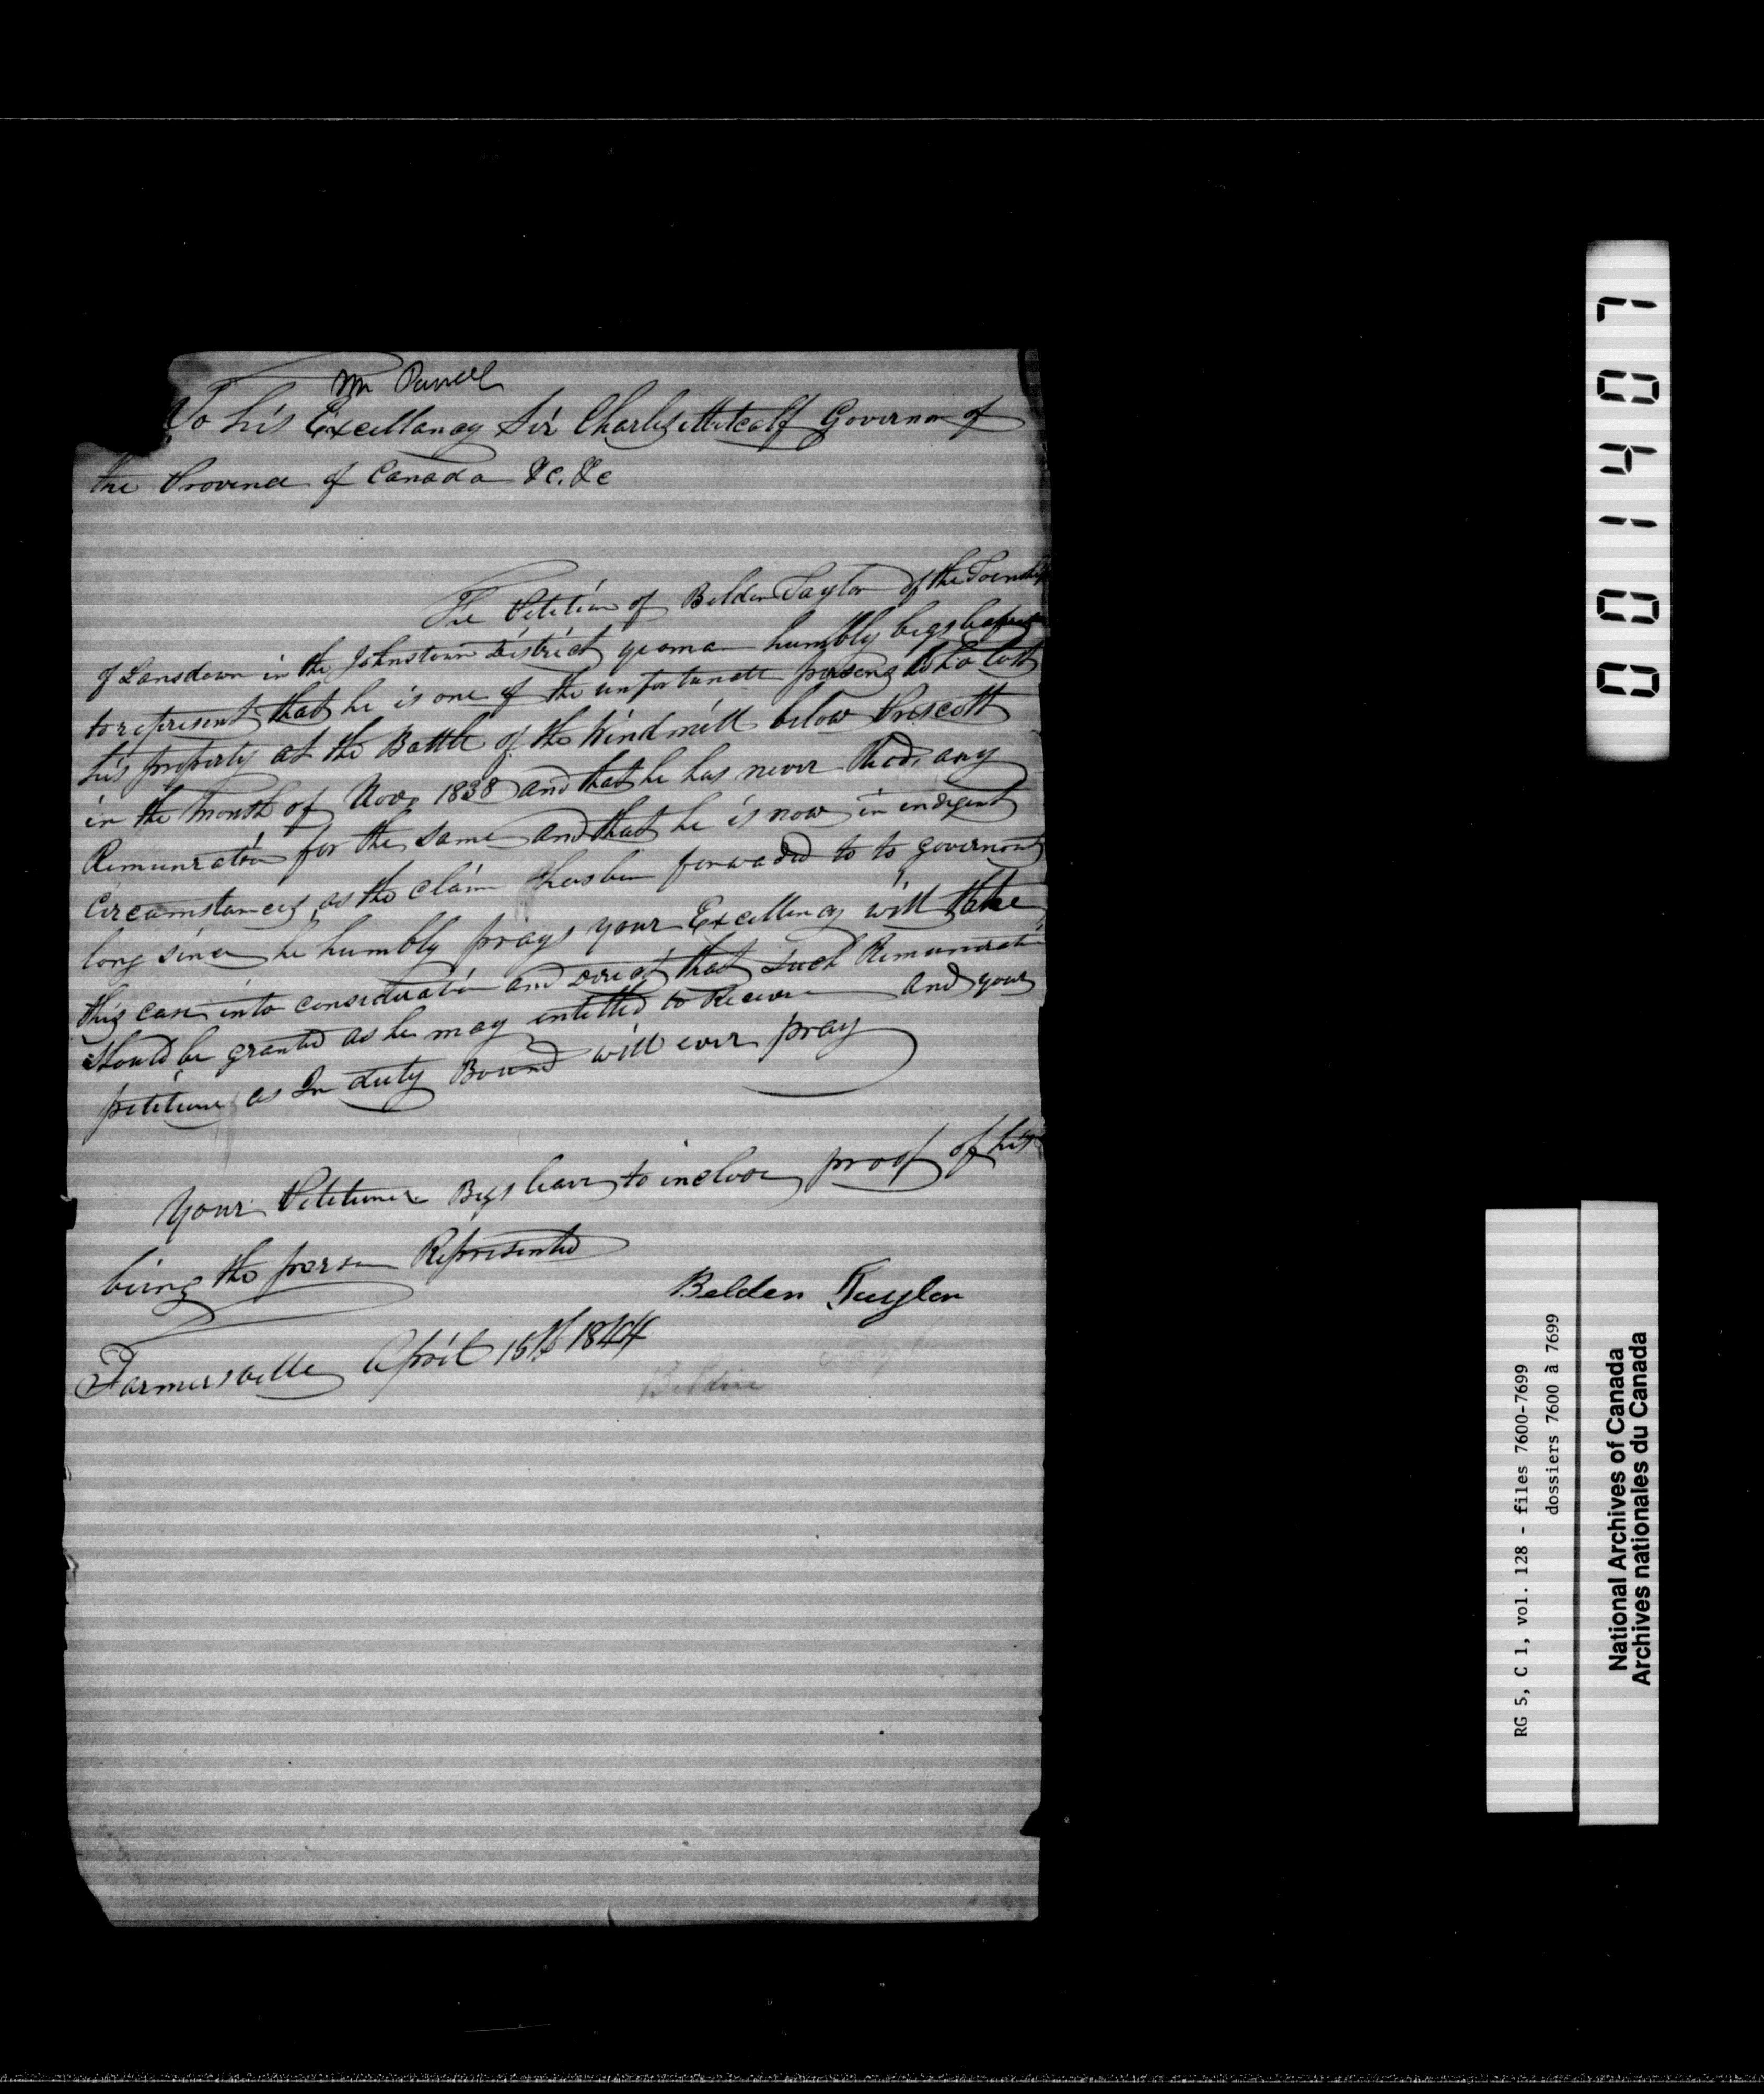 Mr Powell
To his Excellancy Sir Charles Metcalf Governor of
the Province of Canada &c. &c
The Petition of Belden Taylor of the Township
of Lansdown in the Johnstown District yeoman humbly begs leave
to represent that he is one of the unfortunate persons Who lost
his property at the Battle of the Windmill below Prescott
in the month of Nov. 1838 and that he has never Recd. any
Remunration for the same and that he is now in indigent
Circumstances, as the claim has bin forwadd to to government
long since he humbly prays your Excellency will take
this case into consideration and direct that such Remunerati
should be granted as he may intitled to Receive and your
petitioner as In duty Bound will ever pray
Your Petitioner Begs leave to inclose proof of his
being the person Represented
Belden Taylor
Farmersville April 15th 1844
Belden Taylor
001407
RG 5, C 1, vol. 128 - files 7600-7699
dossiers 7600 à 7699
National Archives of Canada
Archives nationales du Canada